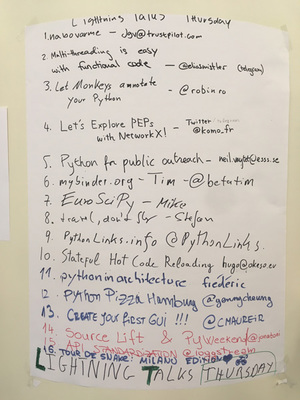 Lightning Talks Thursday
1. nabovarme - jgv@trustpilot.com
2. Multi-threading is easy
with functional code - (telegram)
3. Let Monkeys annotate
your Python - @robinro
4. Let's Explore PEPs
with NetworkX! - Twitter
@komo_fr
5. Python for public outreach -
6. mybinder.org - Tim - @betatim
7. EuroSciPy - Mike
8. travel, don't fly - Stefan
9. PythonLinks.info @PythonLinks
10. Stateful Hot Code Reloading
11. python in architecture frederic
12. Python Pizza Hamburg
13. CREATE YOUR FIRST GUI !!! @CMAUREIR
14. Source Lift & PyWeekend
15. API STANDARDIZATION
16. TOUR DE SNAKE: MILANO EDITION
LIGHTNING TALKS THURSDAY